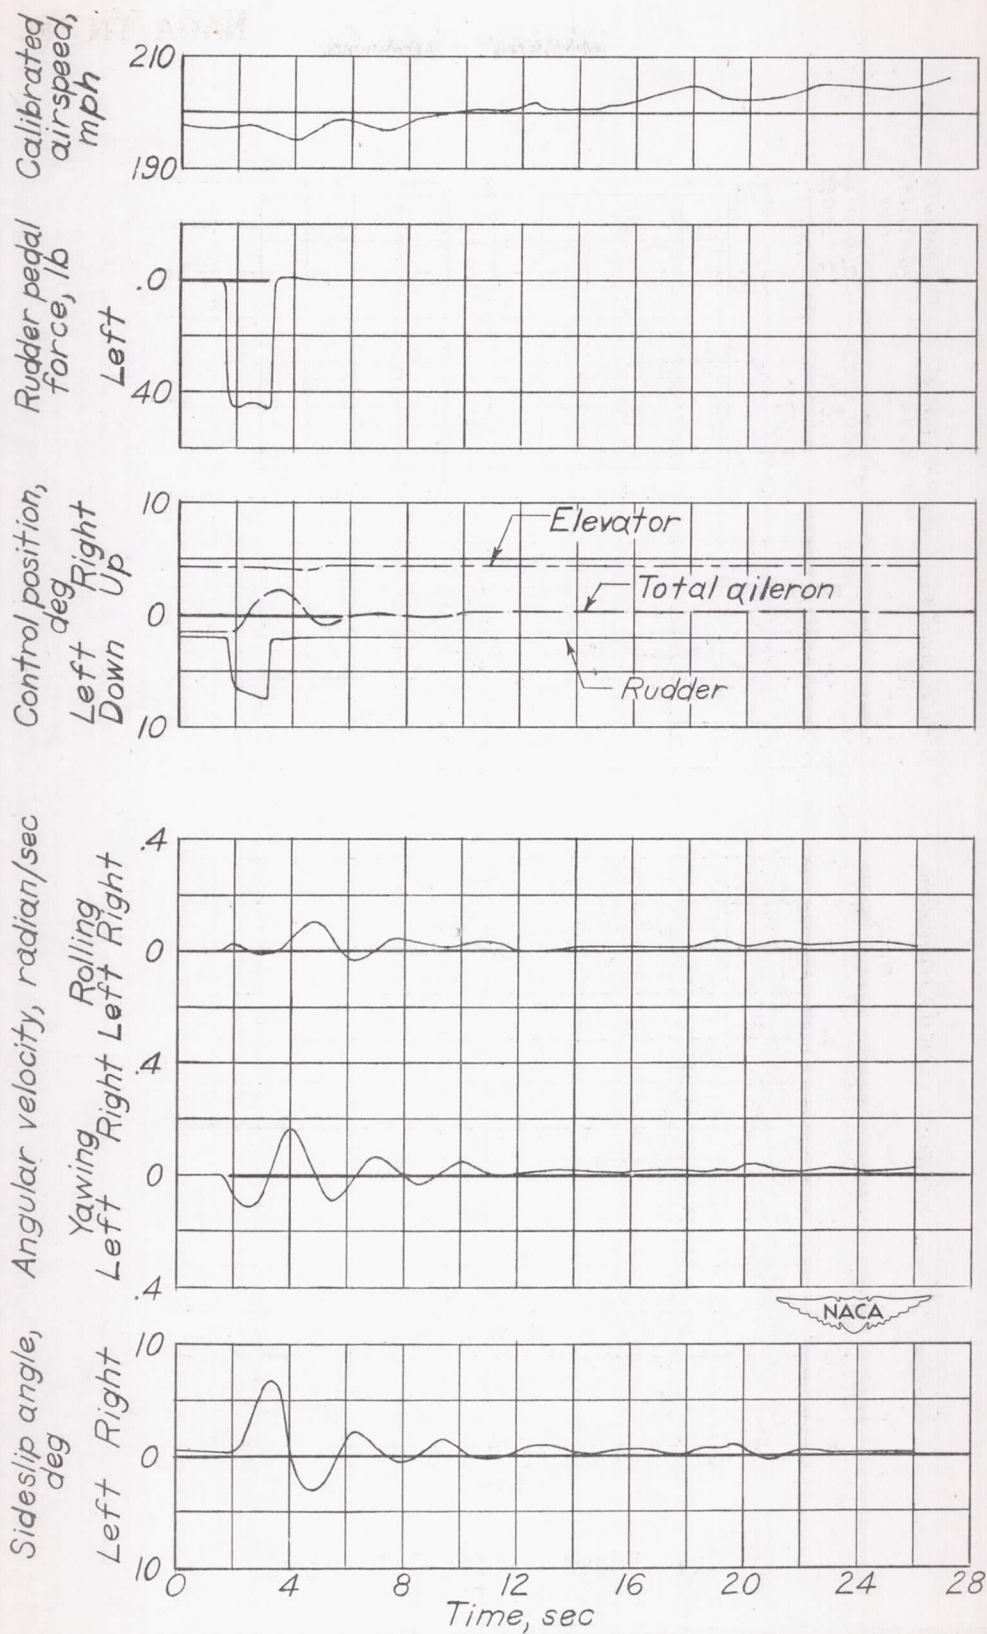 Calibrated
airspeed,
mph
210
190
Rudder pedal
force, lb
Left
.0
40
Control position,
deg
Left Right
Down Up
10
0
10
Elevator
Total aileron
Rudder
Angular velocity, radian/sec
Rolling
Left Right
.4
0
.4
Yawing
Left Right
0
.4
NACA
Sideslip angle,
deg
Left Right
10
0
10
0 4 8 12 16 20 24 28
Time, sec